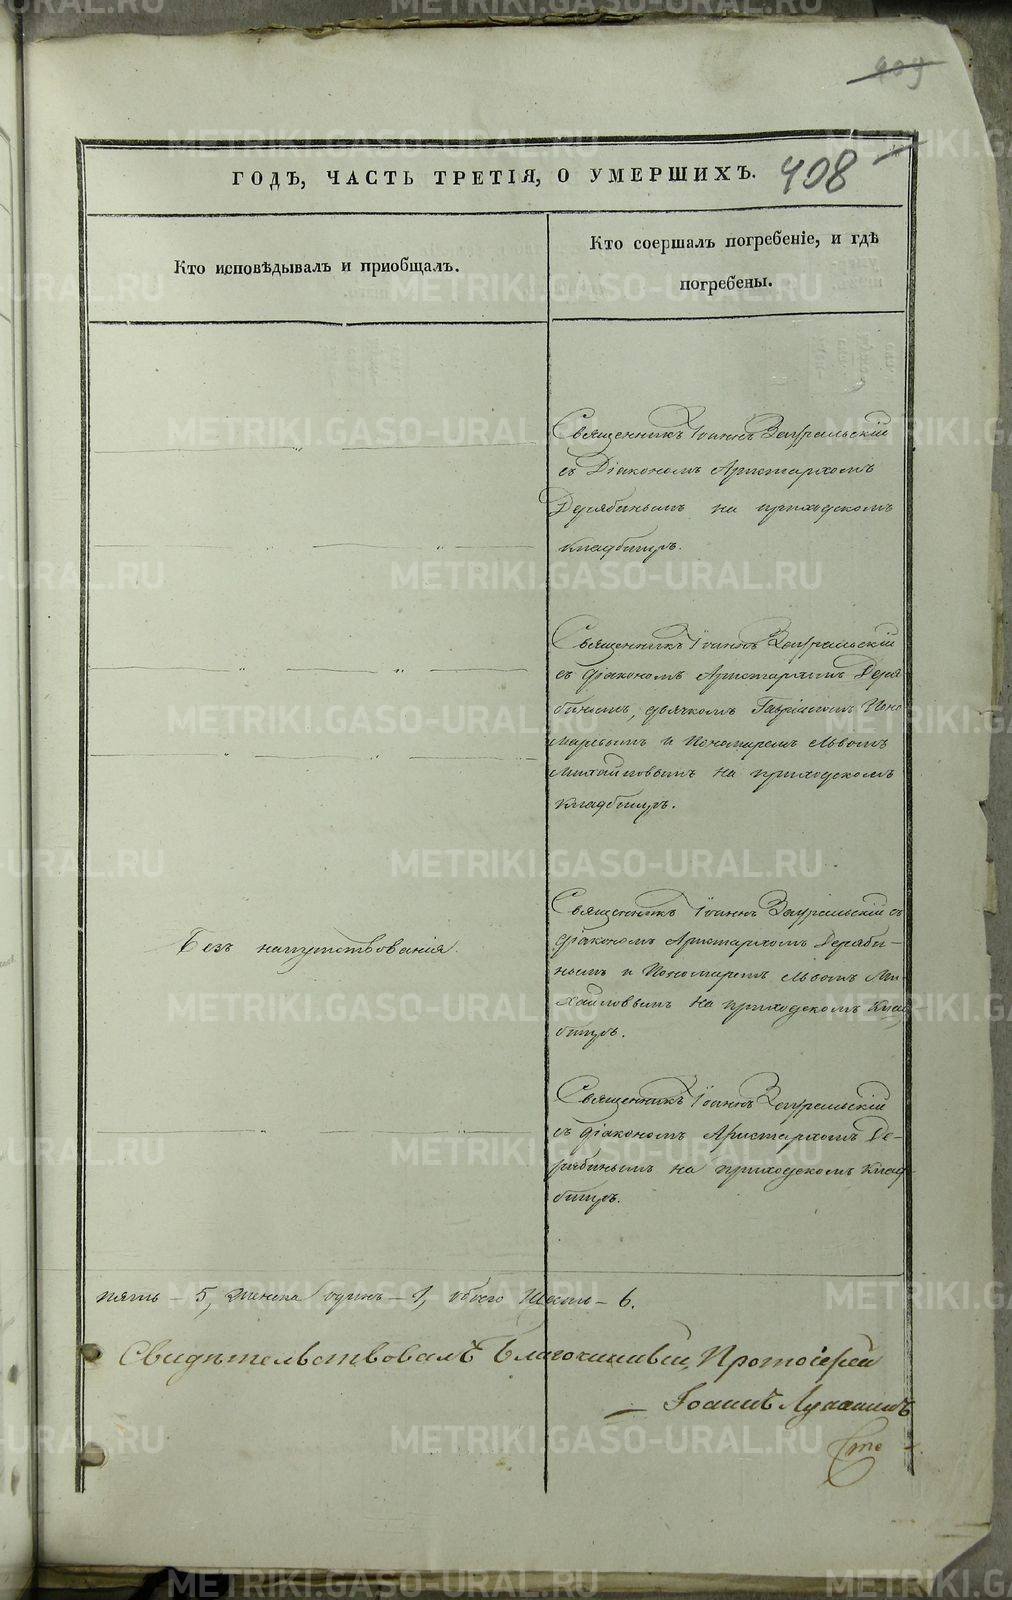 409
408
ГОДЪ, ЧАСТЬ ТРЕТІЯ, О УМЕРШИХЪ.
Кто исповѣдывалъ и приобщалъ.
Кто соершалъ погребеніе, и гдѣ
погребены.
Священникъ Іоаннъ Зауральскій
съ Діакономъ Аристархомъ
Дерябинымъ на приходскомъ
кладбищѣ.
Священникъ Іоаннъ Зауральскій
съ діакономъ Аристархомъ Деря
бинымъ, дьячкомъ Гавріиломъ Поно
маревымъ и Пономаремъ Львомъ
Михайловымъ на приходскомъ
кладбищѣ.
Безъ напутствованія.
Священникъ Іоаннъ Зауральскій съ
діакономъ Аристархомъ Деряби-
нымъ и Пономаремъ Львомъ Ми-
хайловымъ на приходскомъ клад
бищѣ.
Священникъ Іоаннъ Зауральскій
съ діакономъ Аристархомъ Де-
рябинымъ на приходскомъ клад-
бищѣ.
пять - 5, женска одинъ - 1, обоего шесть - 6.
Свидѣтельствовалъ Благочинный, Протоіерей
Іоаннъ
METRIKI.GASO-URAL.RU